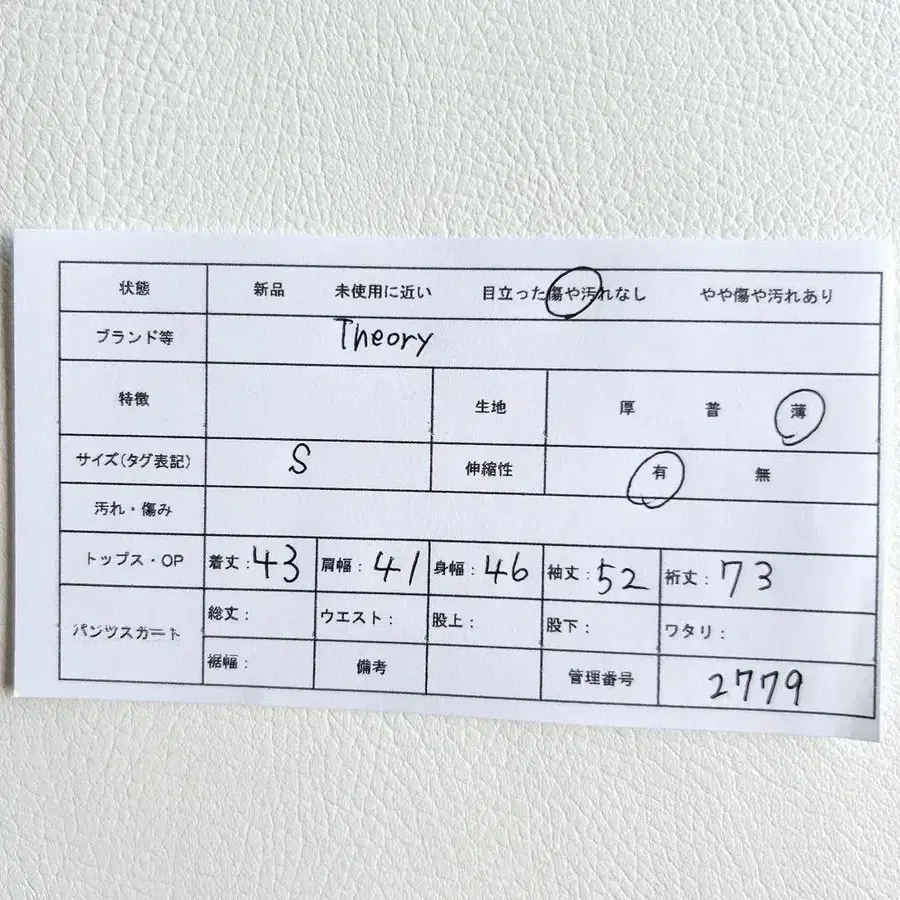 状態 新品 未使用に近い 目立った傷や汚れなし やや傷や汚れあり
ブランド等 Theory
特徴 生地 厚 普 薄
サイズ(タグ表記) S 伸縮性 有 無
汚れ・傷み
トップス・OP 着丈:43 肩幅:41 身幅:46 袖丈:52 裄丈:73
パンツスカート 総丈: ウエスト: 股上: 股下: ワタリ:
裾幅: 備考 管理番号 2779